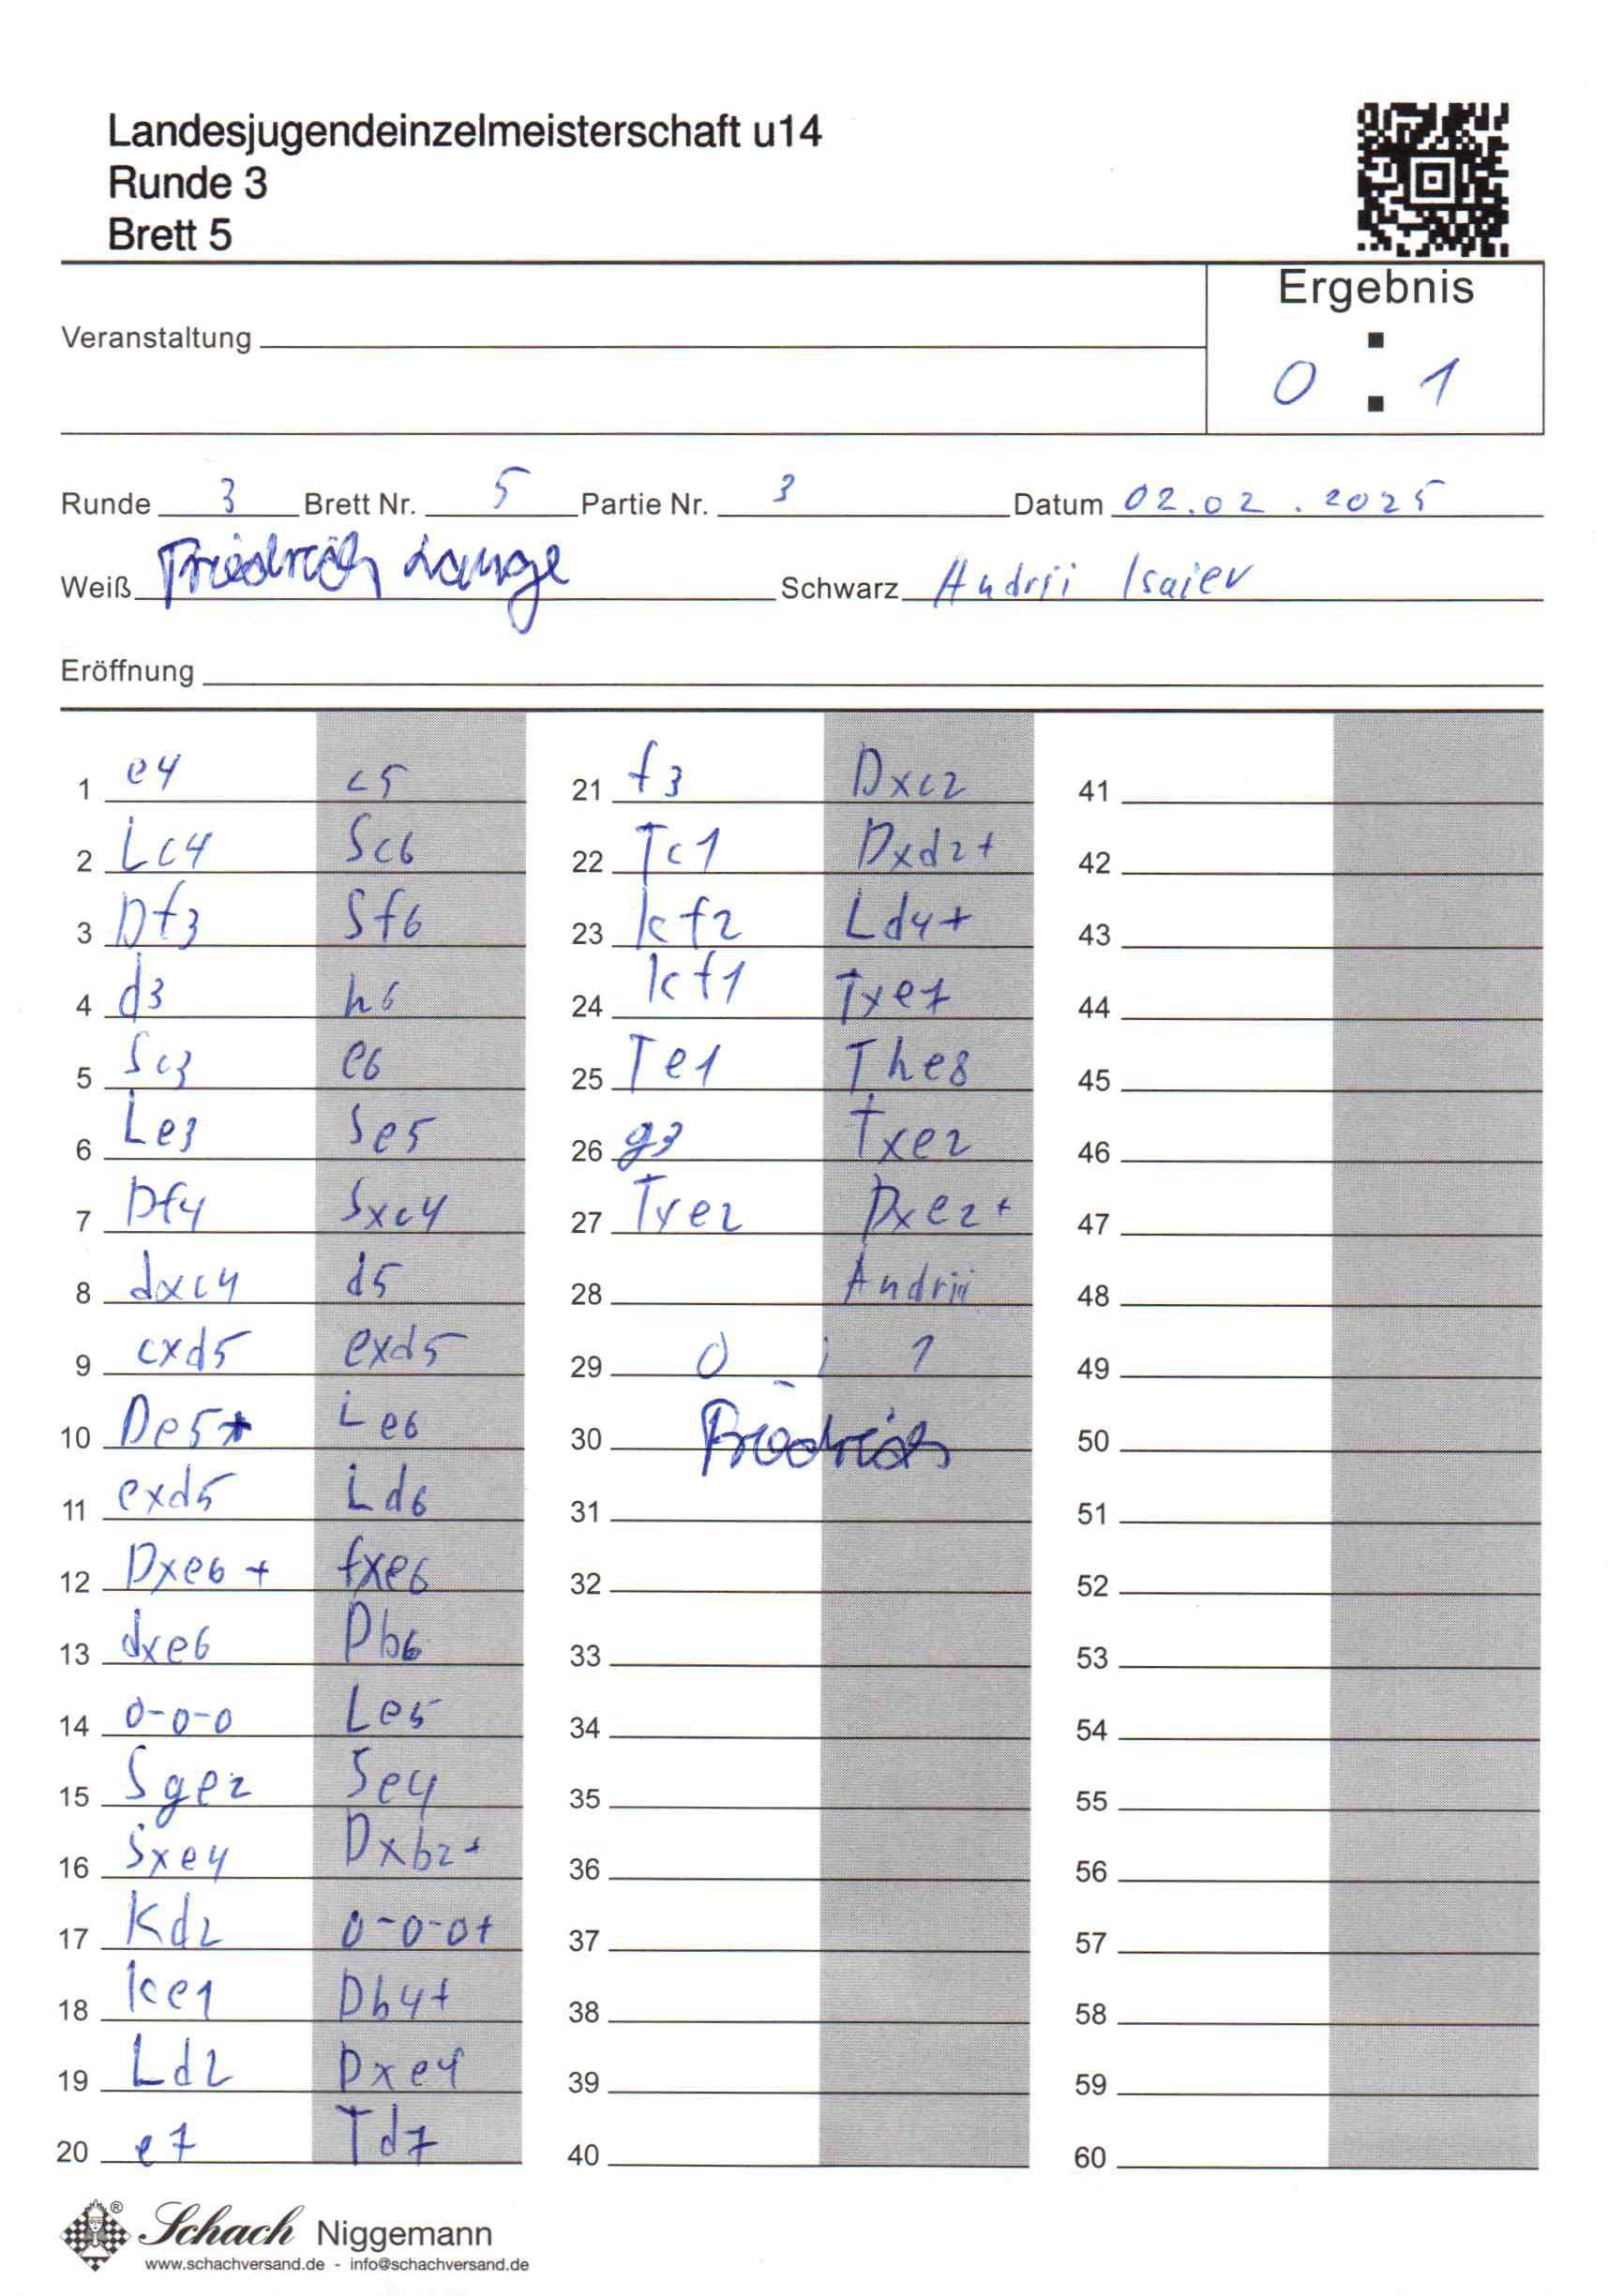 Landesjugendeinzelmeisterschaft u14
Runde 3
Brett 5
Ergebnis
0 : 1
Veranstaltung
Runde 3 Brett Nr. 5 Partie Nr. 3 Datum 02.02.2025
Weiß Friedrich Lange Schwarz Andrii Isaiev
Eröffnung
1 e4 c5
2 Lc4 Sc6
3 Df3 Sf6
4 d3 h6
5 Sc3 e6
6 Le3 Se5
7 Df4 Sxc4
8 dxc4 d5
9 cxd5 exd5
10 De5+ Le6
11 exd5 Ld6
12 Dxe6+ fxe6
13 dxe6 Db6
14 0-0-0 Le5
15 Sge2 Se4
16 Sxe4 Dxb2+
17 Kd2 0-0-0+
18 Ke1 Db4+
19 Ld2 Dxe4
20 e7 Td7
21 f3 Dxc2
22 Tc1 Dxd2+
23 Kf2 Ld4+
24 Kf1 Txe7
25 Te1 The8
26 g3 Txe2
27 Txe2 Dxe2+
28 Andrii
29 0 : 1
30 Friedrich
31
32
33
34
35
36
37
38
39
40
41
42
43
44
45
46
47
48
49
50
51
52
53
54
55
56
57
58
59
60
Schach Niggemann
www.schachversand.de - info@schachversand.de